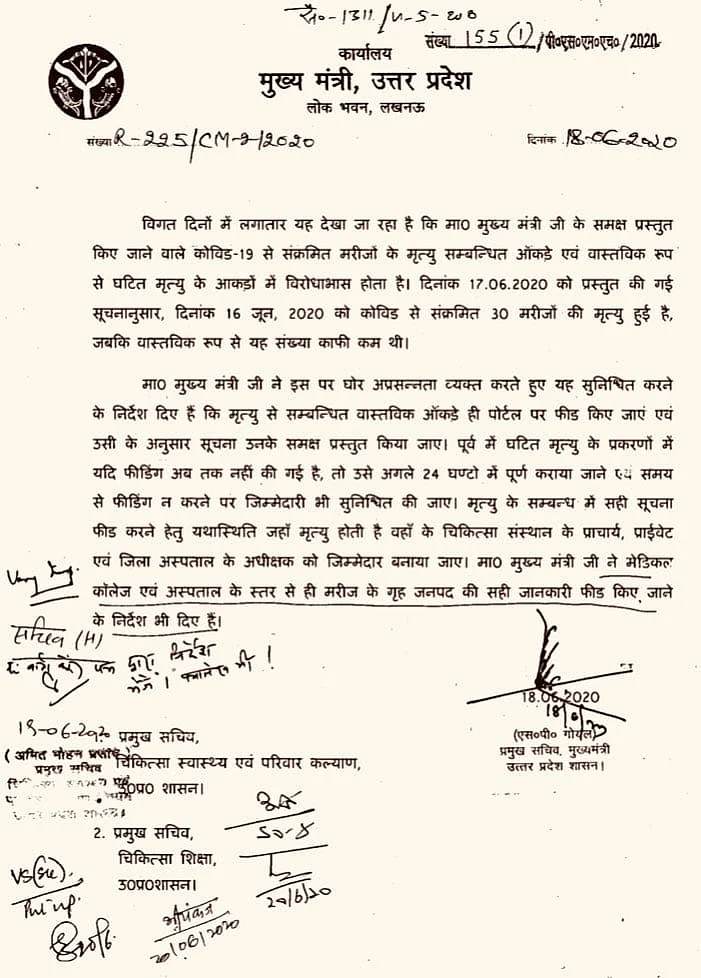 संख्या 155(1)/पी०एस०एम०एच०/2020
कार्यालय
मुख्य मंत्री, उत्तर प्रदेश
लोक भवन, लखनऊ
संख्या R-225/CM-2/2020
दिनांक 18-06-2020
विगत दिनों में लगातार यह देखा जा रहा है कि मा0 मुख्य मंत्री जी के समक्ष प्रस्तुत
किए जाने वाले कोविड-19 से संक्रमित मरीजों के मृत्यु सम्बन्धित ऑकड़े एवं वास्तविक रूप
से घटित मृत्यु के आकड़ों में विरोधाभास होता है। दिनांक 17.06.2020 को प्रस्तुत की गई
सूचनानुसार, दिनांक 16 जून, 2020 को कोविड से संक्रमित 30 मरीजों की मृत्यु हुई है,
जबकि वास्तविक रूप से यह संख्या काफी कम थी।
मा0 मुख्य मंत्री जी ने इस पर घोर अप्रसन्नता व्यक्त करते हुए यह सुनिश्चित करने
के निर्देश दिए हैं कि मृत्यु से सम्बन्धित वास्तविक ऑकड़े ही पोर्टल पर फीड किए जाएं एवं
उसी के अनुसार सूचना उनके समक्ष प्रस्तुत किया जाए। पूर्व में घटित मृत्यु के प्रकरणों में
यदि फीडिंग अब तक नहीं की गई है, तो उसे अगले 24 घण्टो में पूर्ण कराया जाने एवं समय
से फीडिंग न करने पर जिम्मेदारी भी सुनिश्चित की जाए। मृत्यु के सम्बन्ध में सही सूचना
फीड करने हेतु यथास्थिति जहाँ मृत्यु होती है वहाँ के चिकित्सा संस्थान के प्राचार्य, प्राईवेट
एवं जिला अस्पताल के अधीक्षक को जिम्मेदार बनाया जाए। मा0 मुख्य मंत्री जी ने मेडिकल
कॉलेज एवं अस्पताल के स्तर से ही मरीज के गृह जनपद की सही जानकारी फीड किए जाने
के निर्देश भी दिए हैं।
सचिव (H)
18.06.2020
(एस०पी० गोयल)
प्रमुख सचिव, मुख्यमंत्री
उत्तर प्रदेश शासन।
18-06-2020 प्रमुख सचिव,
(अमित मोहन प्रसाद)
प्रमुख सचिव
चिकित्सा स्वास्थ्य एवं परिवार कल्याण,
उ0प्र0 शासन।
2. प्रमुख सचिव,
चिकित्सा शिक्षा,
उ0प्र0शासन।
20/6/20
Put up
20/06/2020